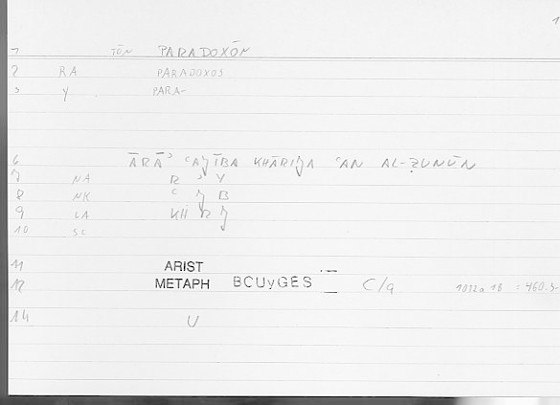 1
1 TŌN PARADOXŌN
2 RA PARADOXOS
3 Y PARA-
6 ĀRĀʾ ʿAǦĪBA KHĀRIǦA ʿAN AL-ẒUNŪN
7 NA R ʾ Y
8 NK ʿ Ǧ B
9 LA KH R Ǧ
10 SC
11 ARIST
12 METAPH BCUyGES C/q 1012a 18 : 460.9
14 U